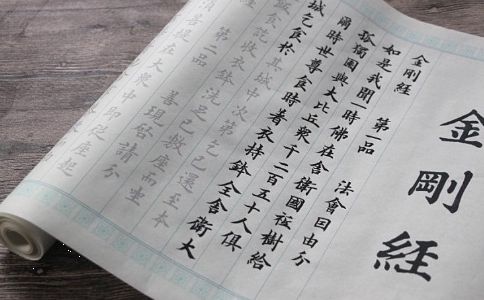 金剛經
金剛經 第一品 法會因由分
如是我聞一時佛在舍衛國祇樹給
孤獨園與大比丘眾千二百五十人俱
爾時世尊食時著衣持鉢入舍衛大
城乞食於其城中次第乞已還至本
飯食訖收衣鉢洗足已敷座而坐
第二品 善現啟請分
菩提在大眾中即從座起